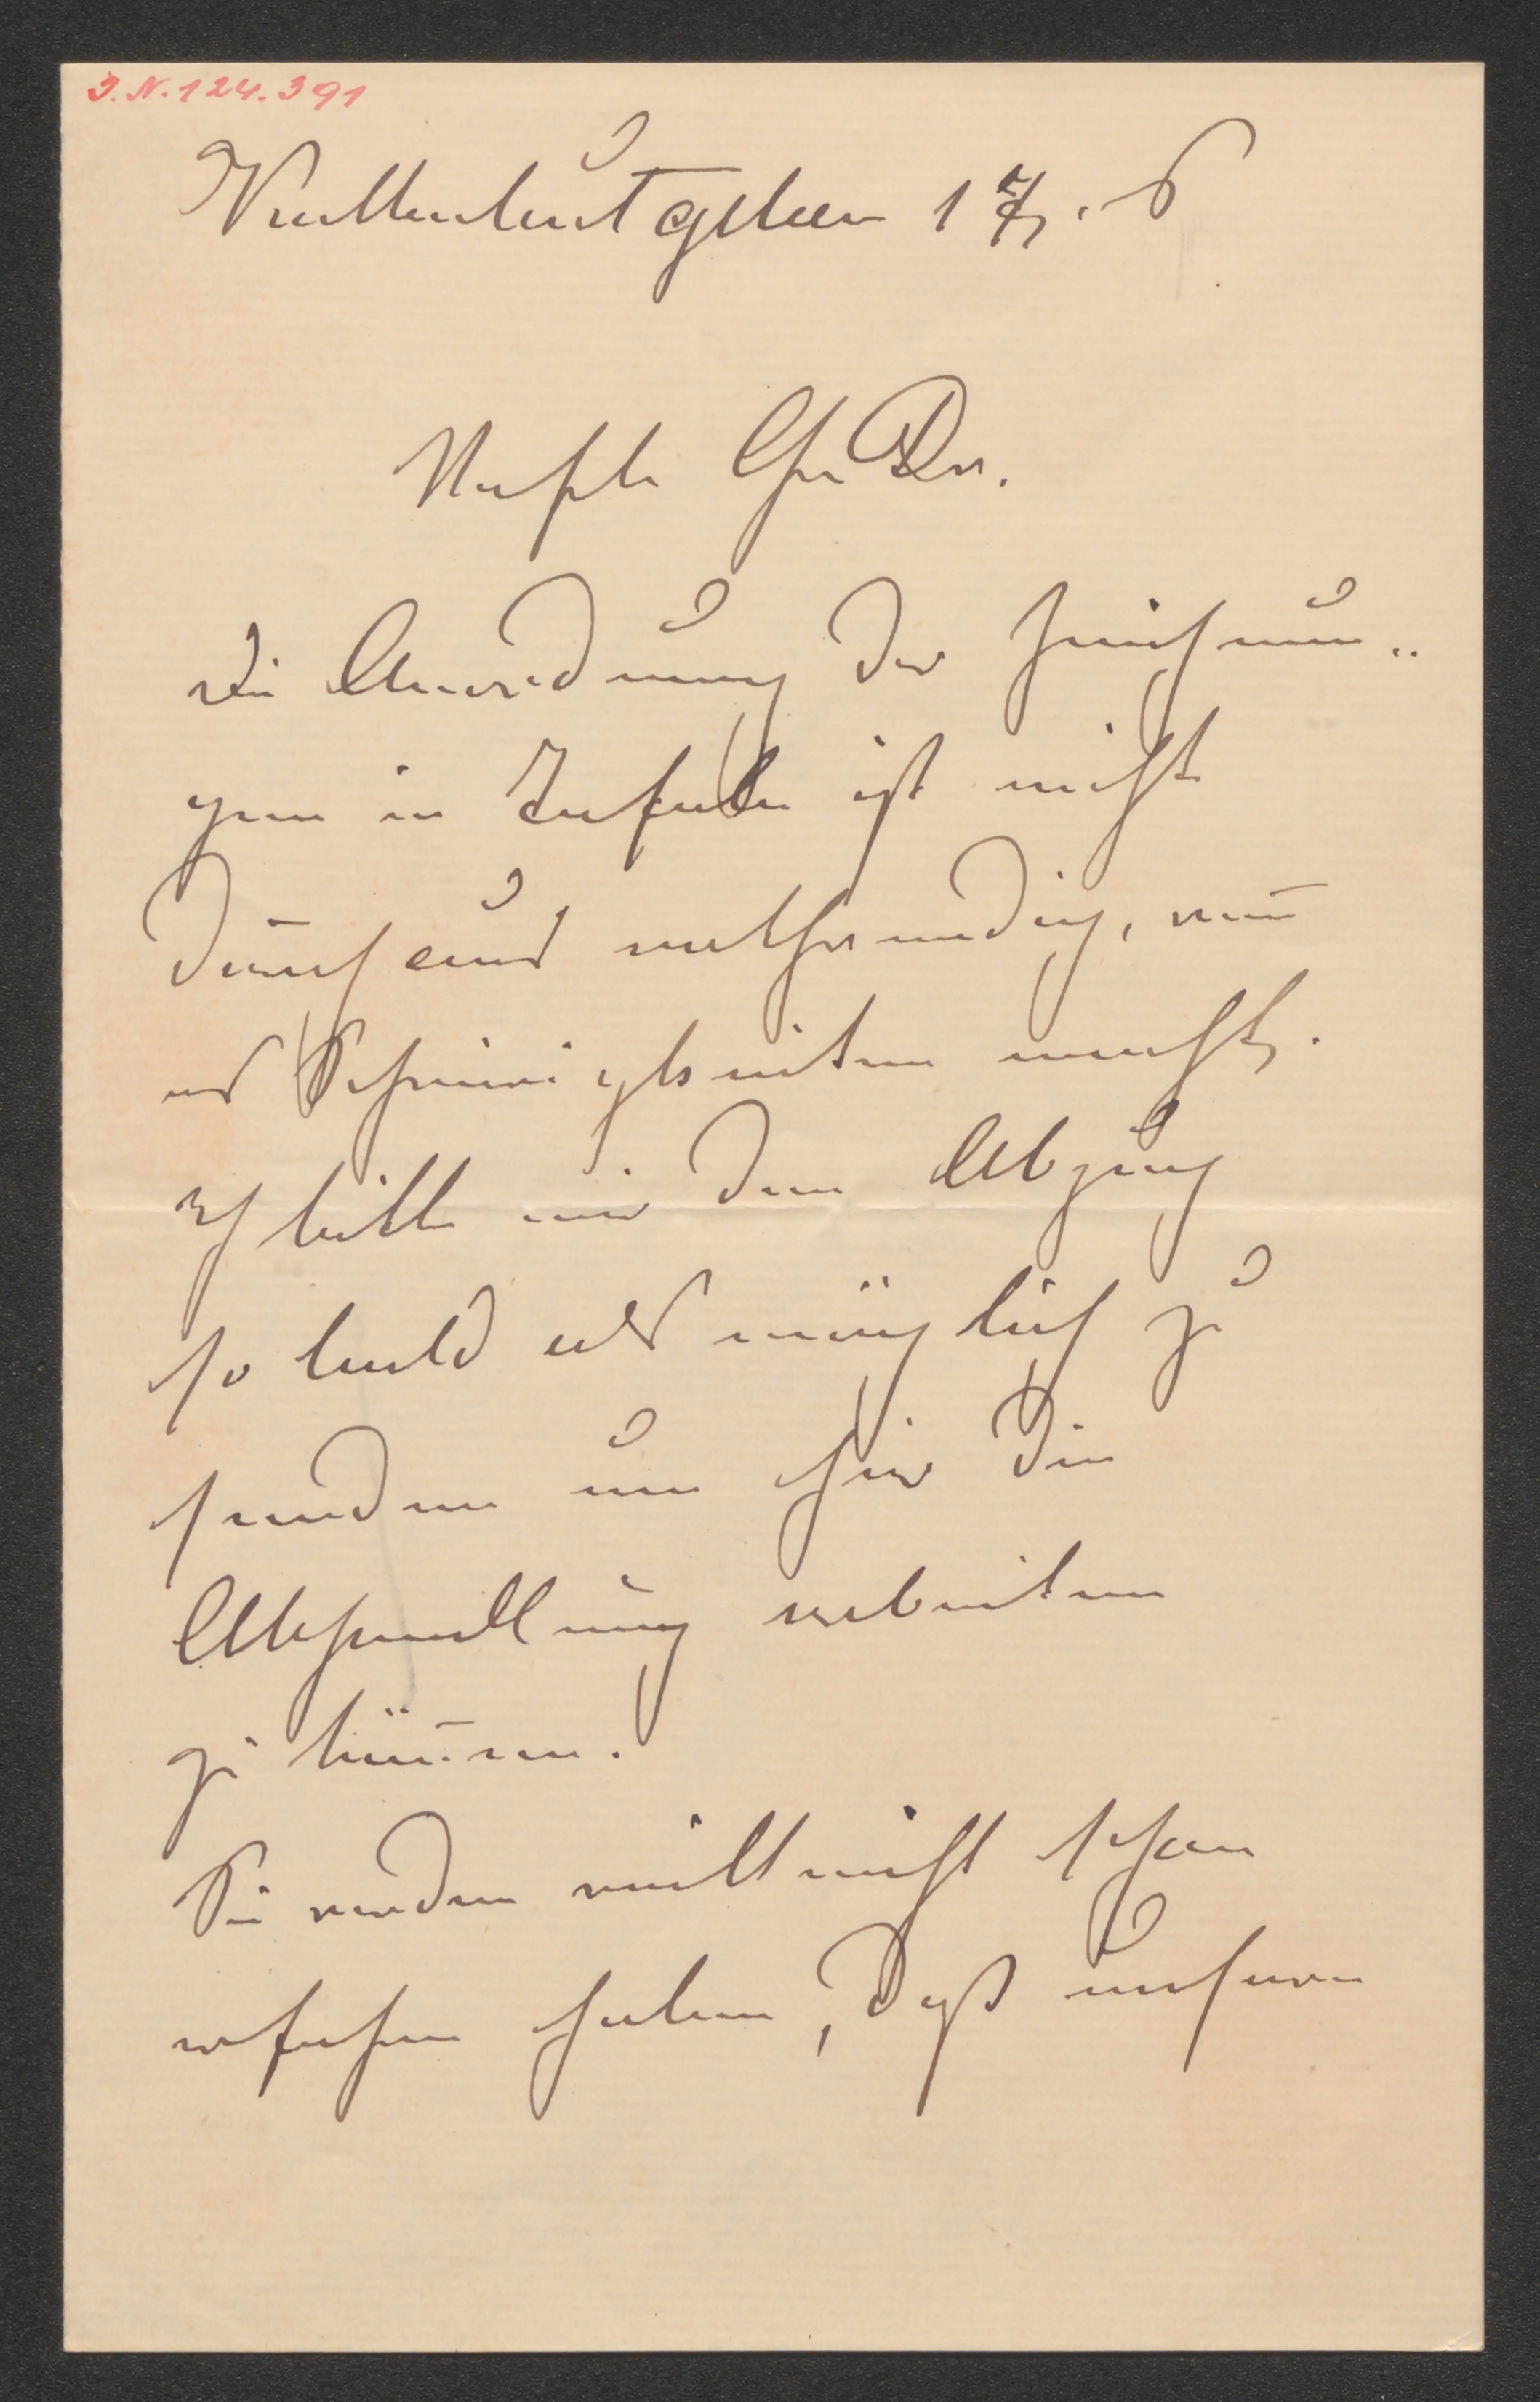 I.N. 124.391
Kaltenleutgeben 17/7. 8
Verehrter Herr Dr.
die Anordnung der Zeichnun-
gen in Tafeln ist nicht
durchaus nothwendig, wenn
es Schwierigkeiten macht.
Ich bitte mir den Abzug
so bald als möglich zu
senden um hier die
Abhandlung arbeiten
zu können.
Sie werden vielleicht schon
erfahren haben, daß unseren